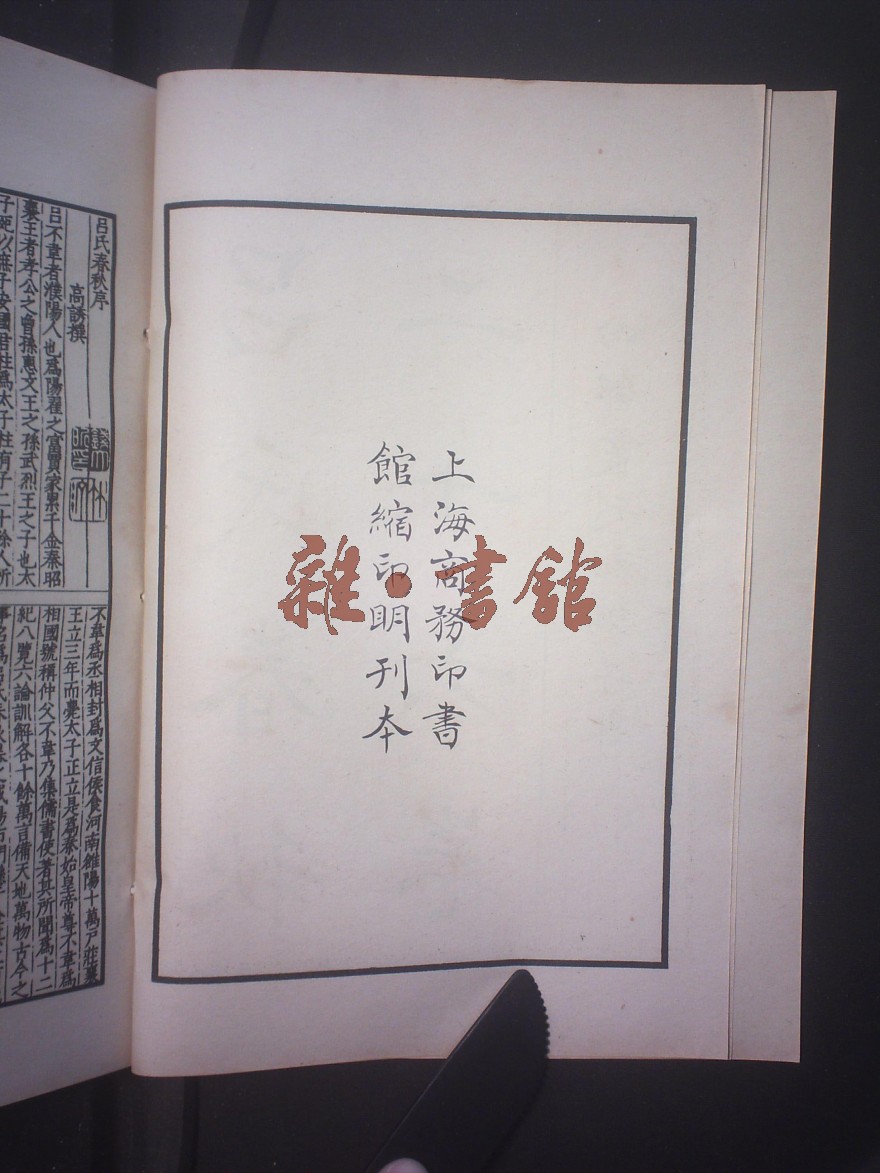 上海商務印書
館縮印眀刊本
雜·書館
呂氏春秋序
高誘撰
呂不韋者濮陽人也爲陽翟之富賈家累千金秦昭
襄王者孝公之曾孫惠文王之孫武烈王之子也太
子死以庶子安國君柱爲太子柱有子二十餘人所
不韋爲丞相封爲文信侯食河南雒陽十萬戸莊襄
王立三年而薨太子正立是爲秦始皇帝尊不韋爲
相國號稱仲父不韋乃集儒書使著其所聞爲十二
紀八覽六論訓解各十餘萬言備天地萬物古今之
事名爲呂氏春秋暴之咸陽市門